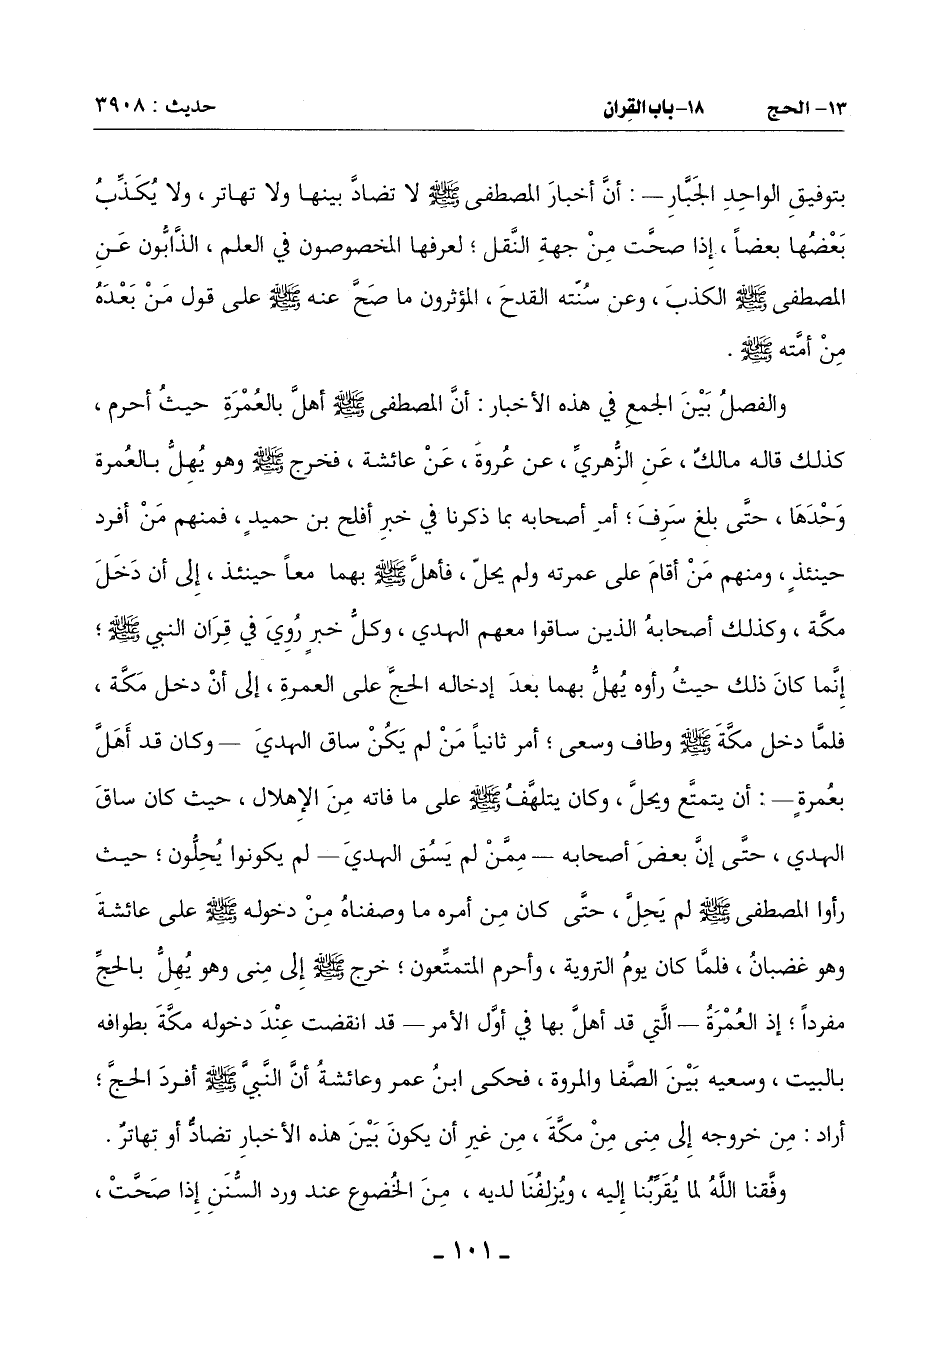 ١٣- الحج ١٨- باب القِران حديث : ٣٩٠٨
بتوفيقِ الواحِدِ الجَبَّارِ — : أنَّ أخبارَ المصطفى ﷺ لا تضادَّ بينها ولا تهاتر ، ولا يُكَذِّبُ
بَعْضُها بعضاً ، إذا صحَّت مِنْ جهةِ النَّقل ؛ لعرفها المخصوصون في العلم ، الذَّابُّون عَنِ
المصطفى ﷺ الكذبَ ، وعن سُنَّته القدحَ ، المؤثرون ما صَحَّ عنه ﷺ على قول مَنْ بَعْدَهُ
مِنْ أمَّته ﷺ .
والفصلُ بَيْنَ الجمعِ في هذه الأخبار : أنَّ المصطفى ﷺ أهلَّ بالعُمْرَةِ حيثُ أحرم ،
كذلك قاله مالكٌ ، عَنِ الزُّهريِّ ، عن عُروةَ ، عَنْ عائشة ، فخرج ﷺ وهو يُهلُّ بالعُمرة
وَحْدَهَا ، حتَّى بلغ سَرِفَ ؛ أمر أصحابه بما ذكرنا في خبرِ أفلح بن حميدٍ ، فمنهم مَنْ أفرد
حينئذٍ ، ومنهم مَنْ أقامَ على عمرته ولم يحلّ ، فأهلَّ ﷺ بهما معاً حينئذ ، إلى أن دَخَلَ
مكَّة ، وكذلك أصحابهُ الذين ساقوا معهم الهدي ، وكلُّ خبرٍ رُويَ في قِرَان النبي ﷺ ؛
إنَّما كانَ ذلك حيثُ رأوه يُهلُّ بهما بعدَ إدخاله الحجَّ على العمرةِ ، إلى أنْ دخل مَكَّة ،
فلمَّا دخل مكَّةَ ﷺ وطاف وسعى ؛ أمر ثانياً مَنْ لم يَكُنْ ساق الهديَ — وكان قد أَهَلَّ
بعُمرةٍ — : أن يتمتَّع ويحلَّ ، وكان يتلهَّفُ ﷺ على ما فاته مِنَ الإهلال ، حيث كان ساقَ
الهدي ، حتَّى إنَّ بعضَ أصحابه — مِمَّنْ لم يَسُق الهديَ — لم يكونوا يُحِلُّون ؛ حيث
رأوا المصطفى ﷺ لم يَحِلَّ ، حتَّى كان مِن أمره ما وصفناهُ مِنْ دخوله ﷺ على عائشةَ
وهو غضبانُ ، فلمَّا كان يومُ التروية ، وأحرم المتمتِّعون ؛ خرج ﷺ إلى مِنى وهو يُهلُّ بالحجِّ
مفرداً ؛ إذ العُمْرَةُ — الَّتي قد أهلَّ بها في أوَّل الأمر — قد انقضت عِنْدَ دخوله مكَّةَ بطوافه
بالبيت ، وسعيه بَيْنَ الصَّفا والمروة ، فحكى ابنُ عمر وعائشةُ أنَّ النَّبيَّ ﷺ أفردَ الحجَّ ؛
أراد : مِن خروجه إلى مِنى مِنْ مكَّةَ ، مِن غيرِ أن يكونَ بَيْنَ هذه الأخبارِ تضادٌّ أو تهاترٌ .
وفَّقنا اللَّهُ لما يُقَرِّبُنا إليه ، ويُزلِفُنَا لديه ، مِنَ الخُضوعِ عند ورد السُّنَنِ إذا صَحَّتْ ،
ـ ١٠١ ـ